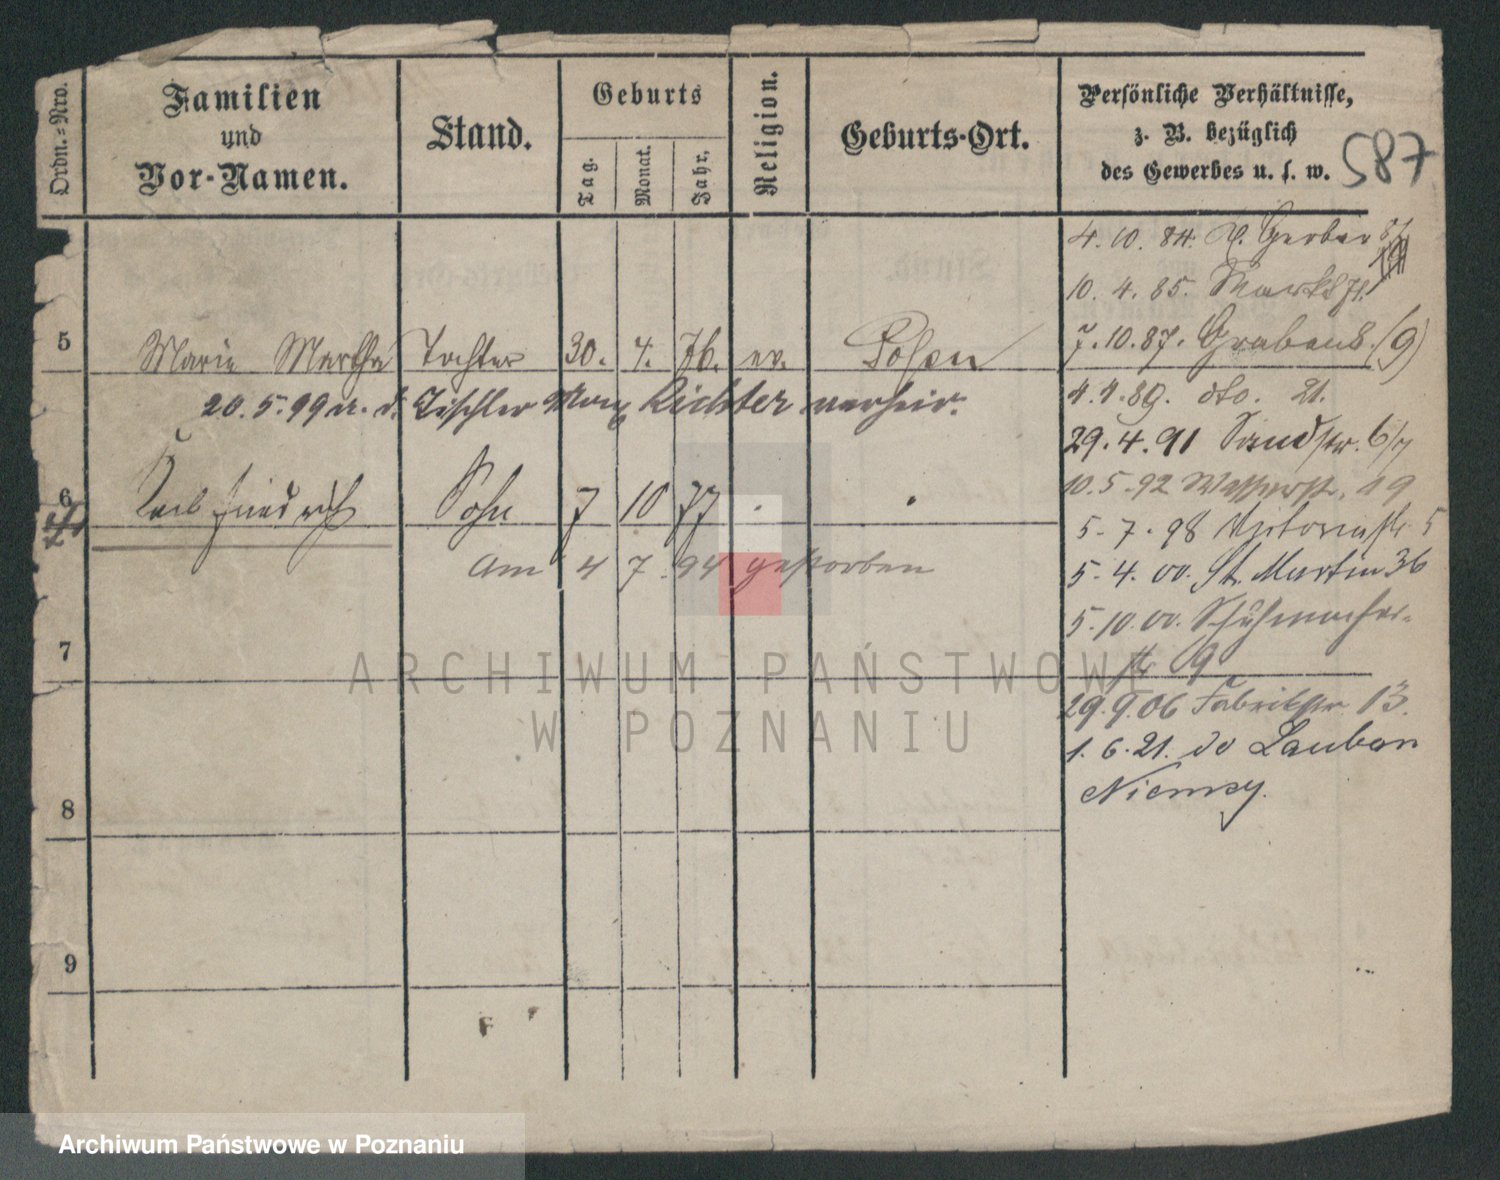 Ordn.=Nro.
Familien
und
Vor-Namen.
Stand.
Geburts
Tag.
Monat.
Jahr.
Religion.
Geburts-Ort.
Persönliche Verhältnisse,
z. B. bezüglich
des Gewerbes u. s. w.
587
5
Marie Martha Tochter 30. 4. 76. ev. Posen
20.5.99 m. d. Tischler Max Richter verheir.
6
Karl Friedrich Sohn 7 10 77 . .
Am 4 7. 94 gestorben
7
8
9
4. 10. 84. Gr. Gerber
10. 4. 85. Markt 71.
7. 10. 87. Grabenstr. (9)
4.4.89. dto. 21.
29.4.91 Sandstr. 6/7
10.5.92 Wasserstr. 19
5. 7. 98 Viktoriastr. 5
5. 4. 00. St. Martin 36
5. 10. 00. Schuhmacher-
str 9
29.9.06 Fabrikstr 13.
1. 6. 21. do Lauban
Niemcy.
ARCHIWUM PAŃSTWOWE
W POZNANIU
Archiwum Państwowe w Poznaniu